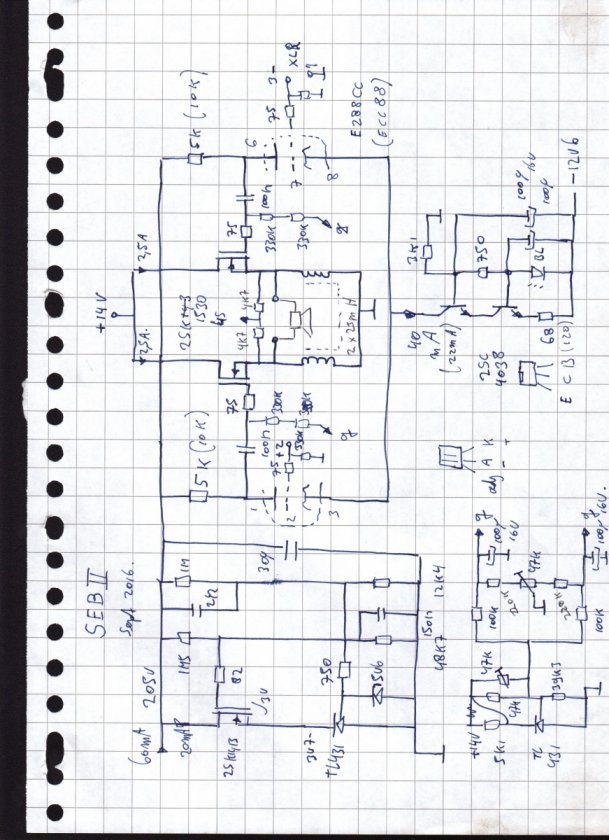 SEB II
Sept. 2016.
60mA
205V
20mA
1M5
1M
2n2
82
2SK413
3V
3V7-
TL431
750
15V6
150n
48K7
12K4
30µ
+14V
2,5A.
2,5A
5K (10K)
5K (10K)
2SK
1530
45
4K7
4K7
75
75
100n
100n
330K
330K
330K
75
1
2
3
2 x 25mH
6
7
8
75
3-
XLR
g1
g
g
E288CC
(ECC88)
40
mA
(22mA)
3K1
750
100µ
16V
100µ
BL
68
(120)
-12V6
2SC
4038
E C B
adj A K
- +
+14V
5K1
47K
47K
TL
431
39K3
100K
100K
220K
220K
47K
g
100µ
16V
g
100µ
16V.